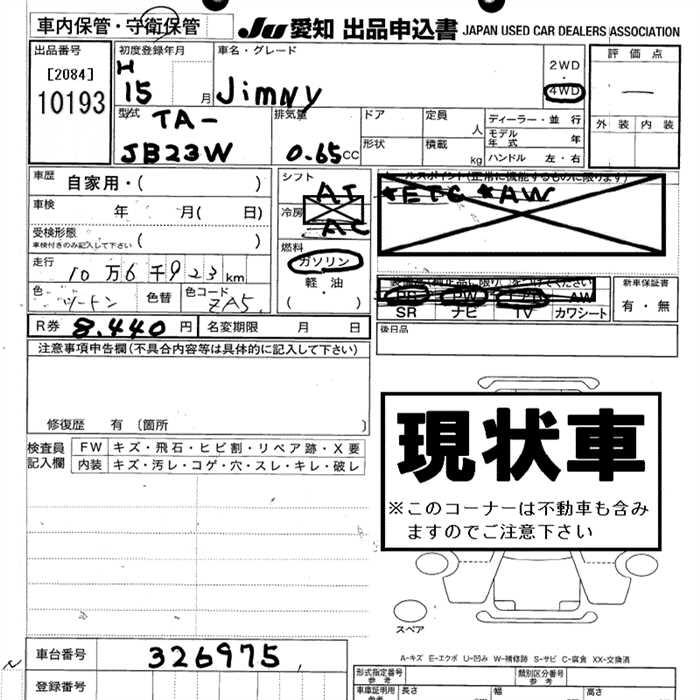 車内保管・守衛保管
JU 愛知 出品申込書 JAPAN USED CAR DEALERS ASSOCIATION
出品番号
[2084]
10193
初度登録年月
H
15 月
車名・グレード
Jimny
2WD
・
4WD
評価点
—
外装 内装
型式
TA-
JB23W
排気量
0.65 CC
ドア
形状
定員 人
積載 kg
ディーラー・並行
モデル年式 年
ハンドル 左・右
車歴 自家用・( )
車検 年 月( 日)
受検形態
車検付きのみ記入して下さい ( )
走行 10万6千923km
色 ツートン 色替 色コード ZA5
R券 8.440円 名変期限 月 日
シフト AT
冷房 AC
燃料
ガソリン
軽・油
( ・ )
セールスポイント(正常に機能するものに限ります)
*ETC *AW
PS PW エアB AW
SR ナビ TV カワシート
新車保証書
有・無
後日品
注意事項申告欄(不具合内容等は具体的に記入して下さい)
修復歴 有〔箇所 〕
検査員記入欄
FW キズ・飛石・ヒビ割・リペア跡・X要
内装 キズ・汚レ・コゲ・穴・スレ・キレ・破レ
現状車
※このコーナーは不動車も含み
ますのでご注意下さい
スペア
A-キズ E-エクボ U-凹み W-補修跡 S-サビ C-腐食 XX-交換済
車台番号 326975
登録番号
形式指定番号
参考
類別区分番号
参考
車庫証明用
参考
長さ 幅 高さ